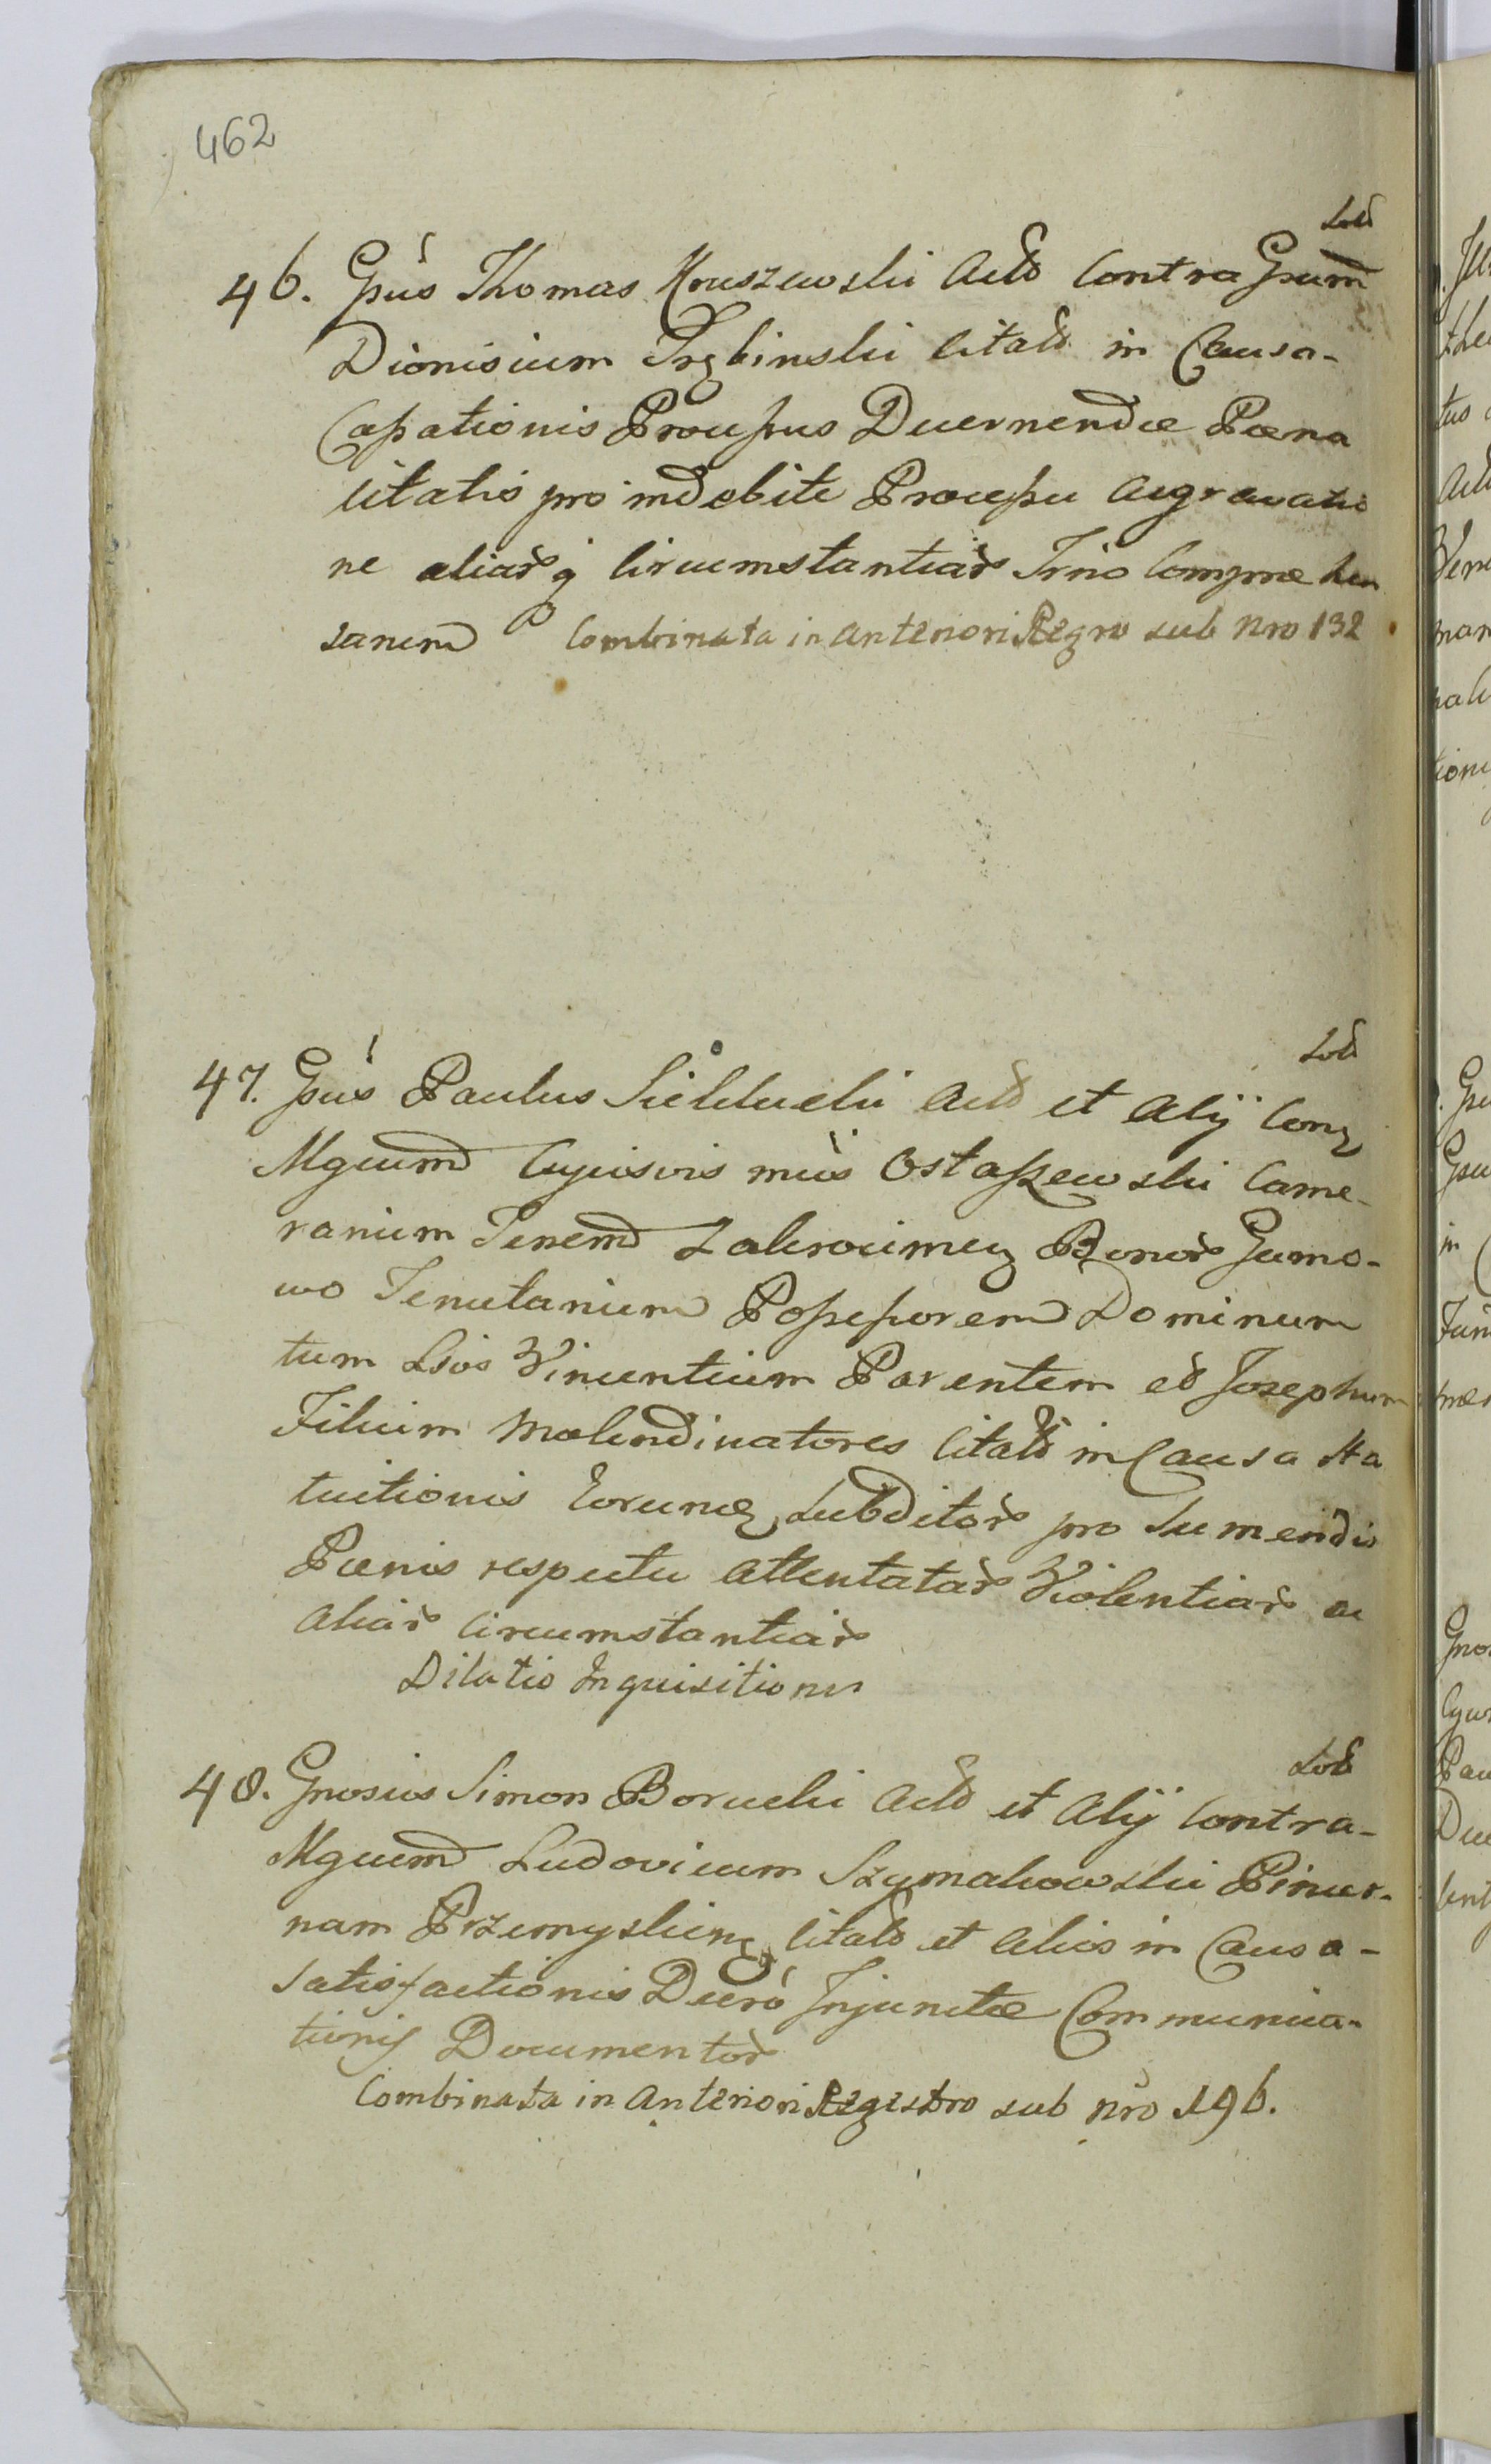 462
Sołł
46. Gsus Thomas Kruszewski Actt Contra Gsum
Dionisium Trębinski Citatt in Causa-
Cassationis Processus Decernendæ Pæna
litatis pro indebite Processu aggravatio
ne aliarq Circumstantiar Trno Compræhen
sarum Combinata in anteriori Regro sub Nro 132
Sołł
47. Gsus Paulus Sielducki Actt et Alij Conz
Mgcum Cyprisvis mus Ostaszewski Came-
rarium Terrem Zakrocimeñ Bonor Gumo-
wo Tenutarium Possessorem Dominum
tum Lsos Vincentium Parentem et Josephum
Filium Molendinatores Citatt in Causa sta
tuitionis Eorumq Subditor pro Sumendis
Pænis respectu attentatar Violentiar ac
aliar Circumstantiar
Dilatio Inquisitionis
Sołł
48. Gnosus Simon Borucki Actt et Alij Contra-
Mgcum Ludovicum Szymakowski Pincer-
nam Przemyslienę Citatt et alios in Causa-
Satisfactionis Decro Injunctæ Communica-
tionis Documentor
Combinata in anteriori Regestro sub Nro 196.